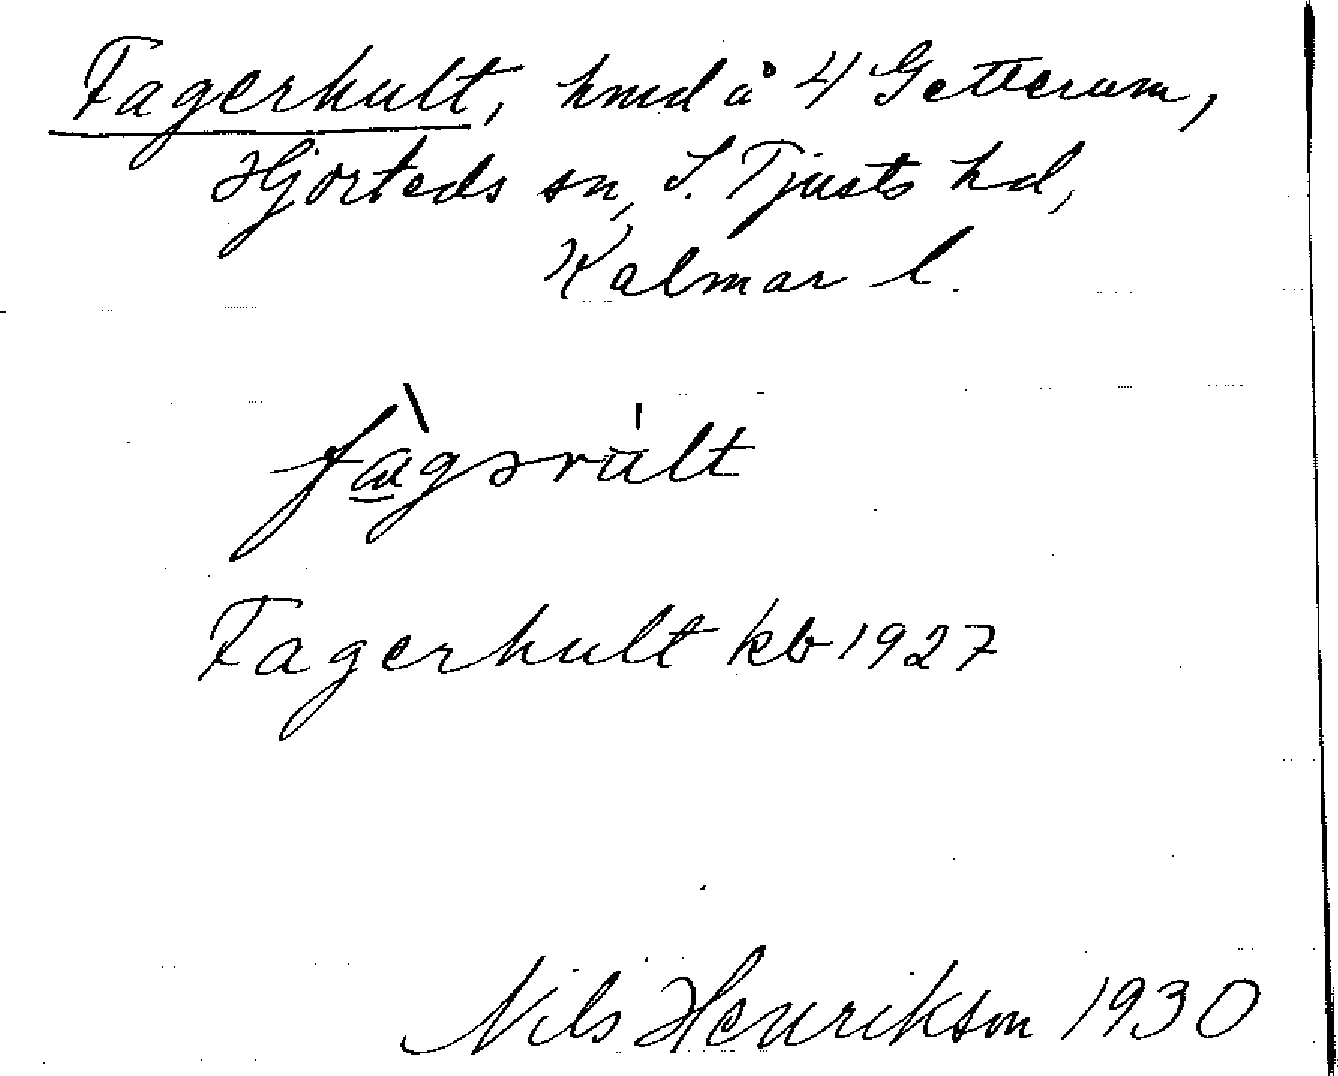 Fagerhult, hmd å 4 Getterum,
Hjorteds sn, S. Tjusts hd,
Kalmar l.
fà̲gərùlt
Fagerhult kb 1927
Nils Henrikson 1930